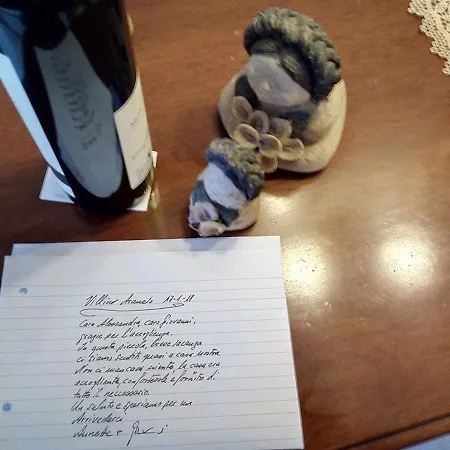 Villino Arancio 17-1-18
Cara Alessandra, caro Giovanni,
grazie per l'accoglienza.
In questa piccola, breve vacanza
ci siamo sentiti quasi a casa nostra.
Non ci mancava niente, la casa era
accogliente, confortevole e fornita di
tutto il necessario.
Un saluto e speriamo per un
Arrivederci